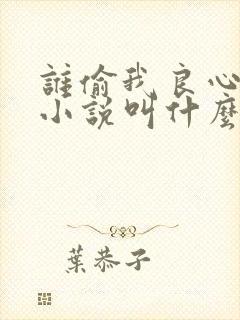 誰偷我良心
小說叫什麼
葉恭子